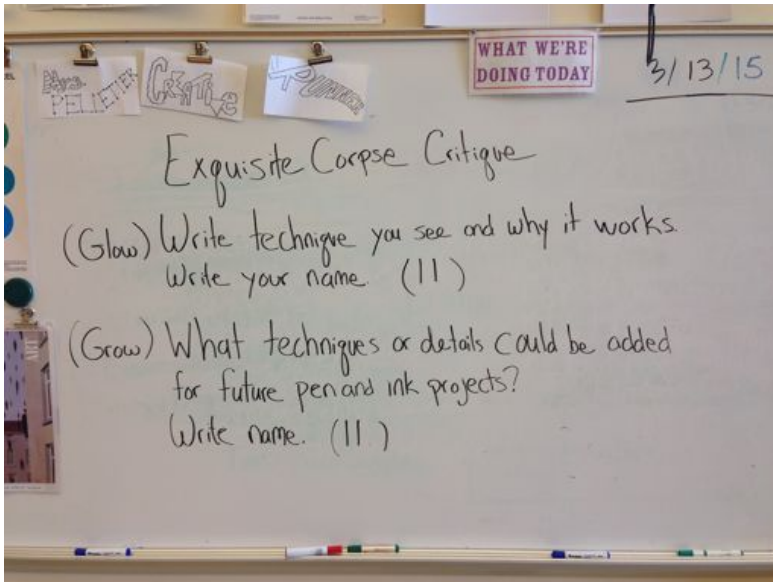 WHAT WE'RE
DOING TODAY
3/13/15
Mrs.
PELLETIER
CREATIVE
Exquisite Corpse Critique
(Glow) Write technique you see and why it works.
Write your name. (11)
(Grow) What techniques or details could be added
for future pen and ink projects?
Write name. (11)